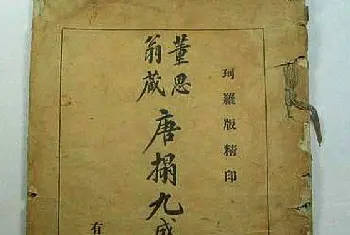 珂羅版精印
董思翁藏
唐搨九成
有